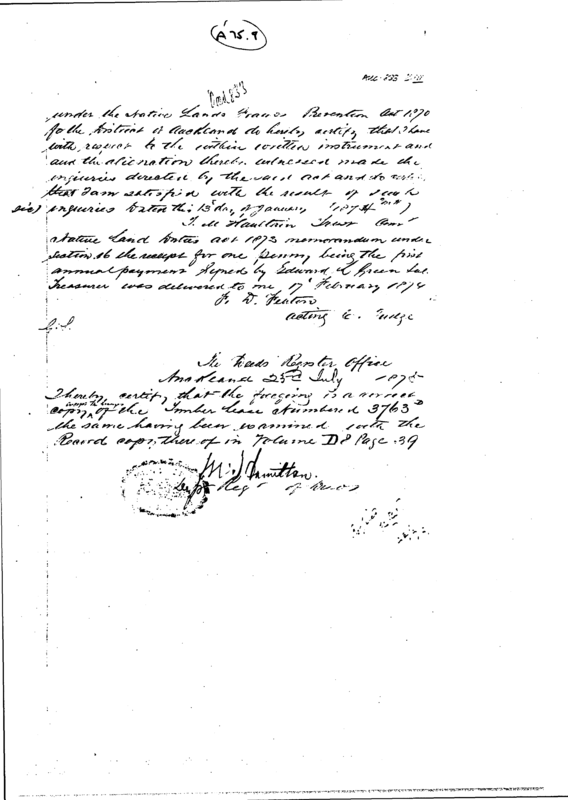 A 75.9
Ded 833
AUC. 833
under the Native Lands Frauds Prevention Act 1870
for the District of Auckland do hereby certify that I have
with respect to the within written instrument and
and the alienation thereby witnessed made the
inquiries directed by the said Act and do
that I am satisfied with the result of such
sic) inquiries Dated this 13 day of January 1874
T. M Haultain Trust Com
Native Land Duties Act 1873 memorandum under
Section the receipt for one penny being the first
annual payment signed by Edward L Green
Treasurer was delivered to me 17 February 1874
F. D. Fenton
acting Judge
The Deeds Register Office
Auckland 23rd July 1875
I hereby certify that the foregoing is a correct
copy of the Timber lease Numbered 3763 D
the same having been examined with the
Record copy thereof in Volume D 8 Page 39
Hamilton.
Regr of Deeds